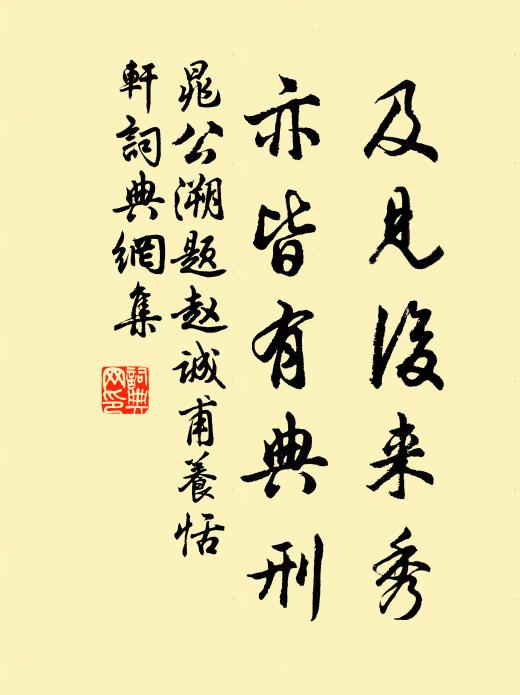 及见後来秀
亦皆有典刑
晁公溯题赵诚甫養恬
軒詞典網集
詞典網印